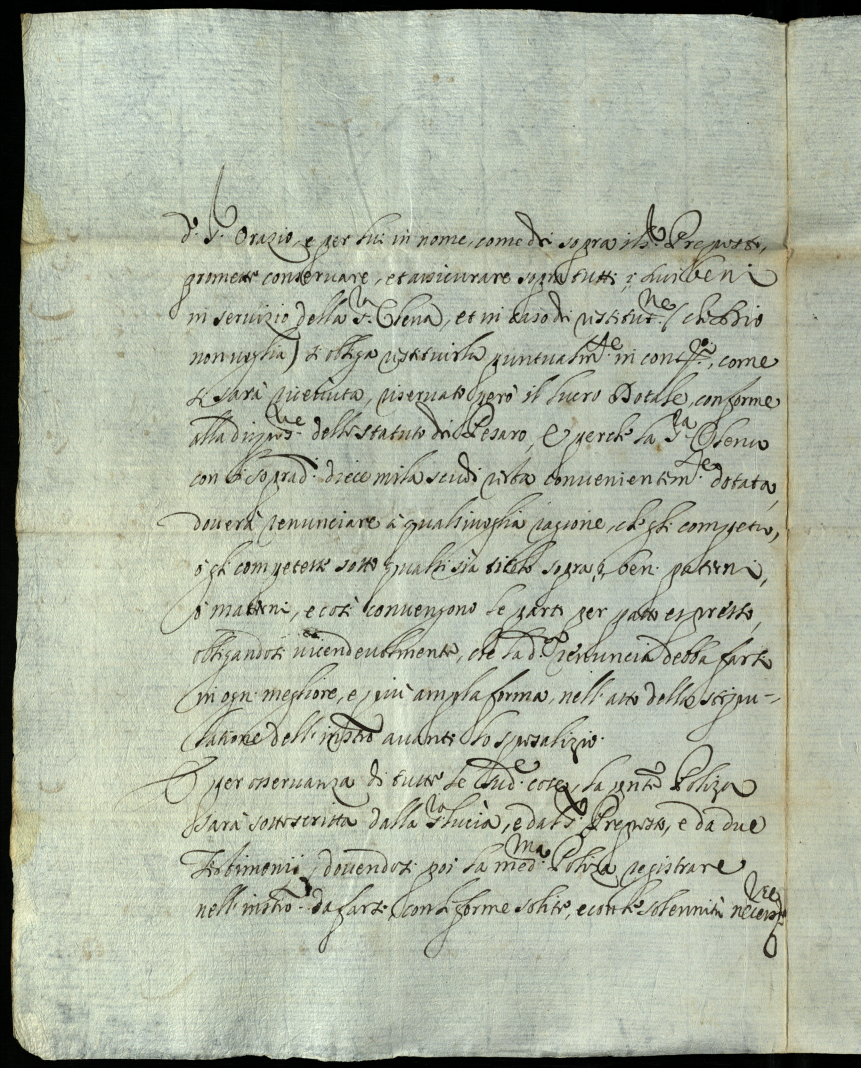 d.º S.r Orazio, e per lui in nome, come di sopra il S.r Preposto,
promette conservare, et assicurare sopra tutti i suoi beni
in servizio della S.ra Elena, et in caso di restitut.ne (che Dio
non voglia) si obliga restituirla puntualm.te in cont.ti, come
si sarà ricevuta, riservato però il lucro Dotale, conforme
alla dispos.ne dello statuto di Pesaro, E perche la S.ra Elena
con li soprad.i dieci mila scudi resta convenientem.te dotata,
doverà renunciare à qualsivoglia ragione, che gli compete,
ò gli competesse sotto qualsisia titolo sopra i beni paterni,
ò materni, e così convengono le parti per patto espresso,
obligandosi vicendevolmente, che la d.a renuncia debba farsi
in ogni megliore, e più ampla forma, nell'atto della stipu-
latione dell'instro avanti lo sposalizio.
E per osservanza di tutte le sud.e cose, la pnte Poliza
sarà sottoscritta dalla S.ra Lucia, e dal S.r Preposto, e da due
Testimonij, dovendosi poi la med.ma Poliza registrare
nell'instro da farsi con le forme solite, e con le solennità necess.rie